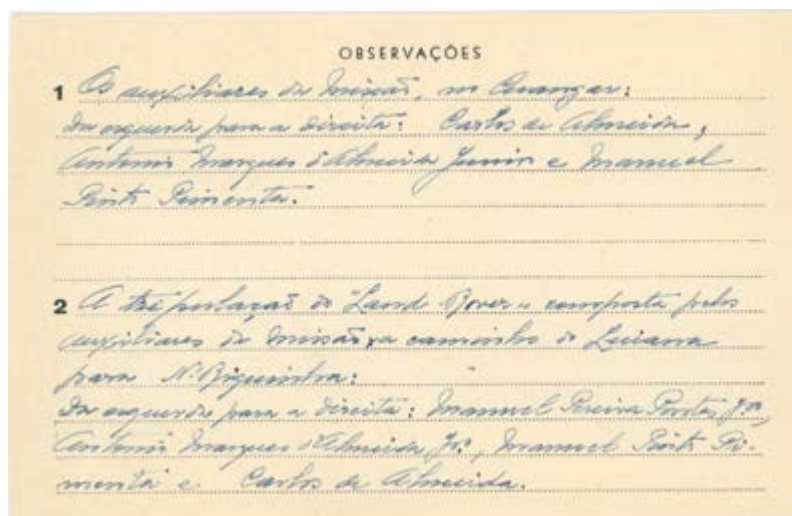 OBSERVAÇÕES
1 Os auxiliares da missão, no Cuangar:
Da esquerda para a direita: Carlos de Almeida,
Antonio Marques d'Almeida Junior e Manuel
Pinto Pimenta.
2 A tripulação do "Land-Rover" composta pelos
auxiliares da missão, a caminho de Luiana
para
Da esquerda para a direita: Manuel Pereira Jor,
Antonio Marques d'Almeida Jor, Manuel Pinto Pi-
menta e Carlos de Almeida.